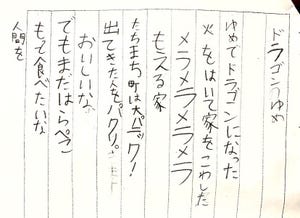 ドラゴンのゆめ
ゆめでドラゴンになった
火をはいて家をこわした
メラメラメラメラ
もえる家
たちまち町は大パニック!
出てきた人をパクリ。
おいしいな
でもまたはらぺこ
もっと食べたいな
人間を